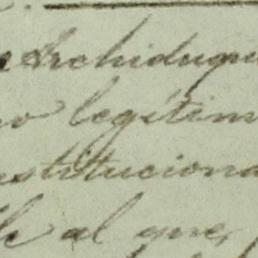 e Archiduqu
o legitim
stituciona
le al que,